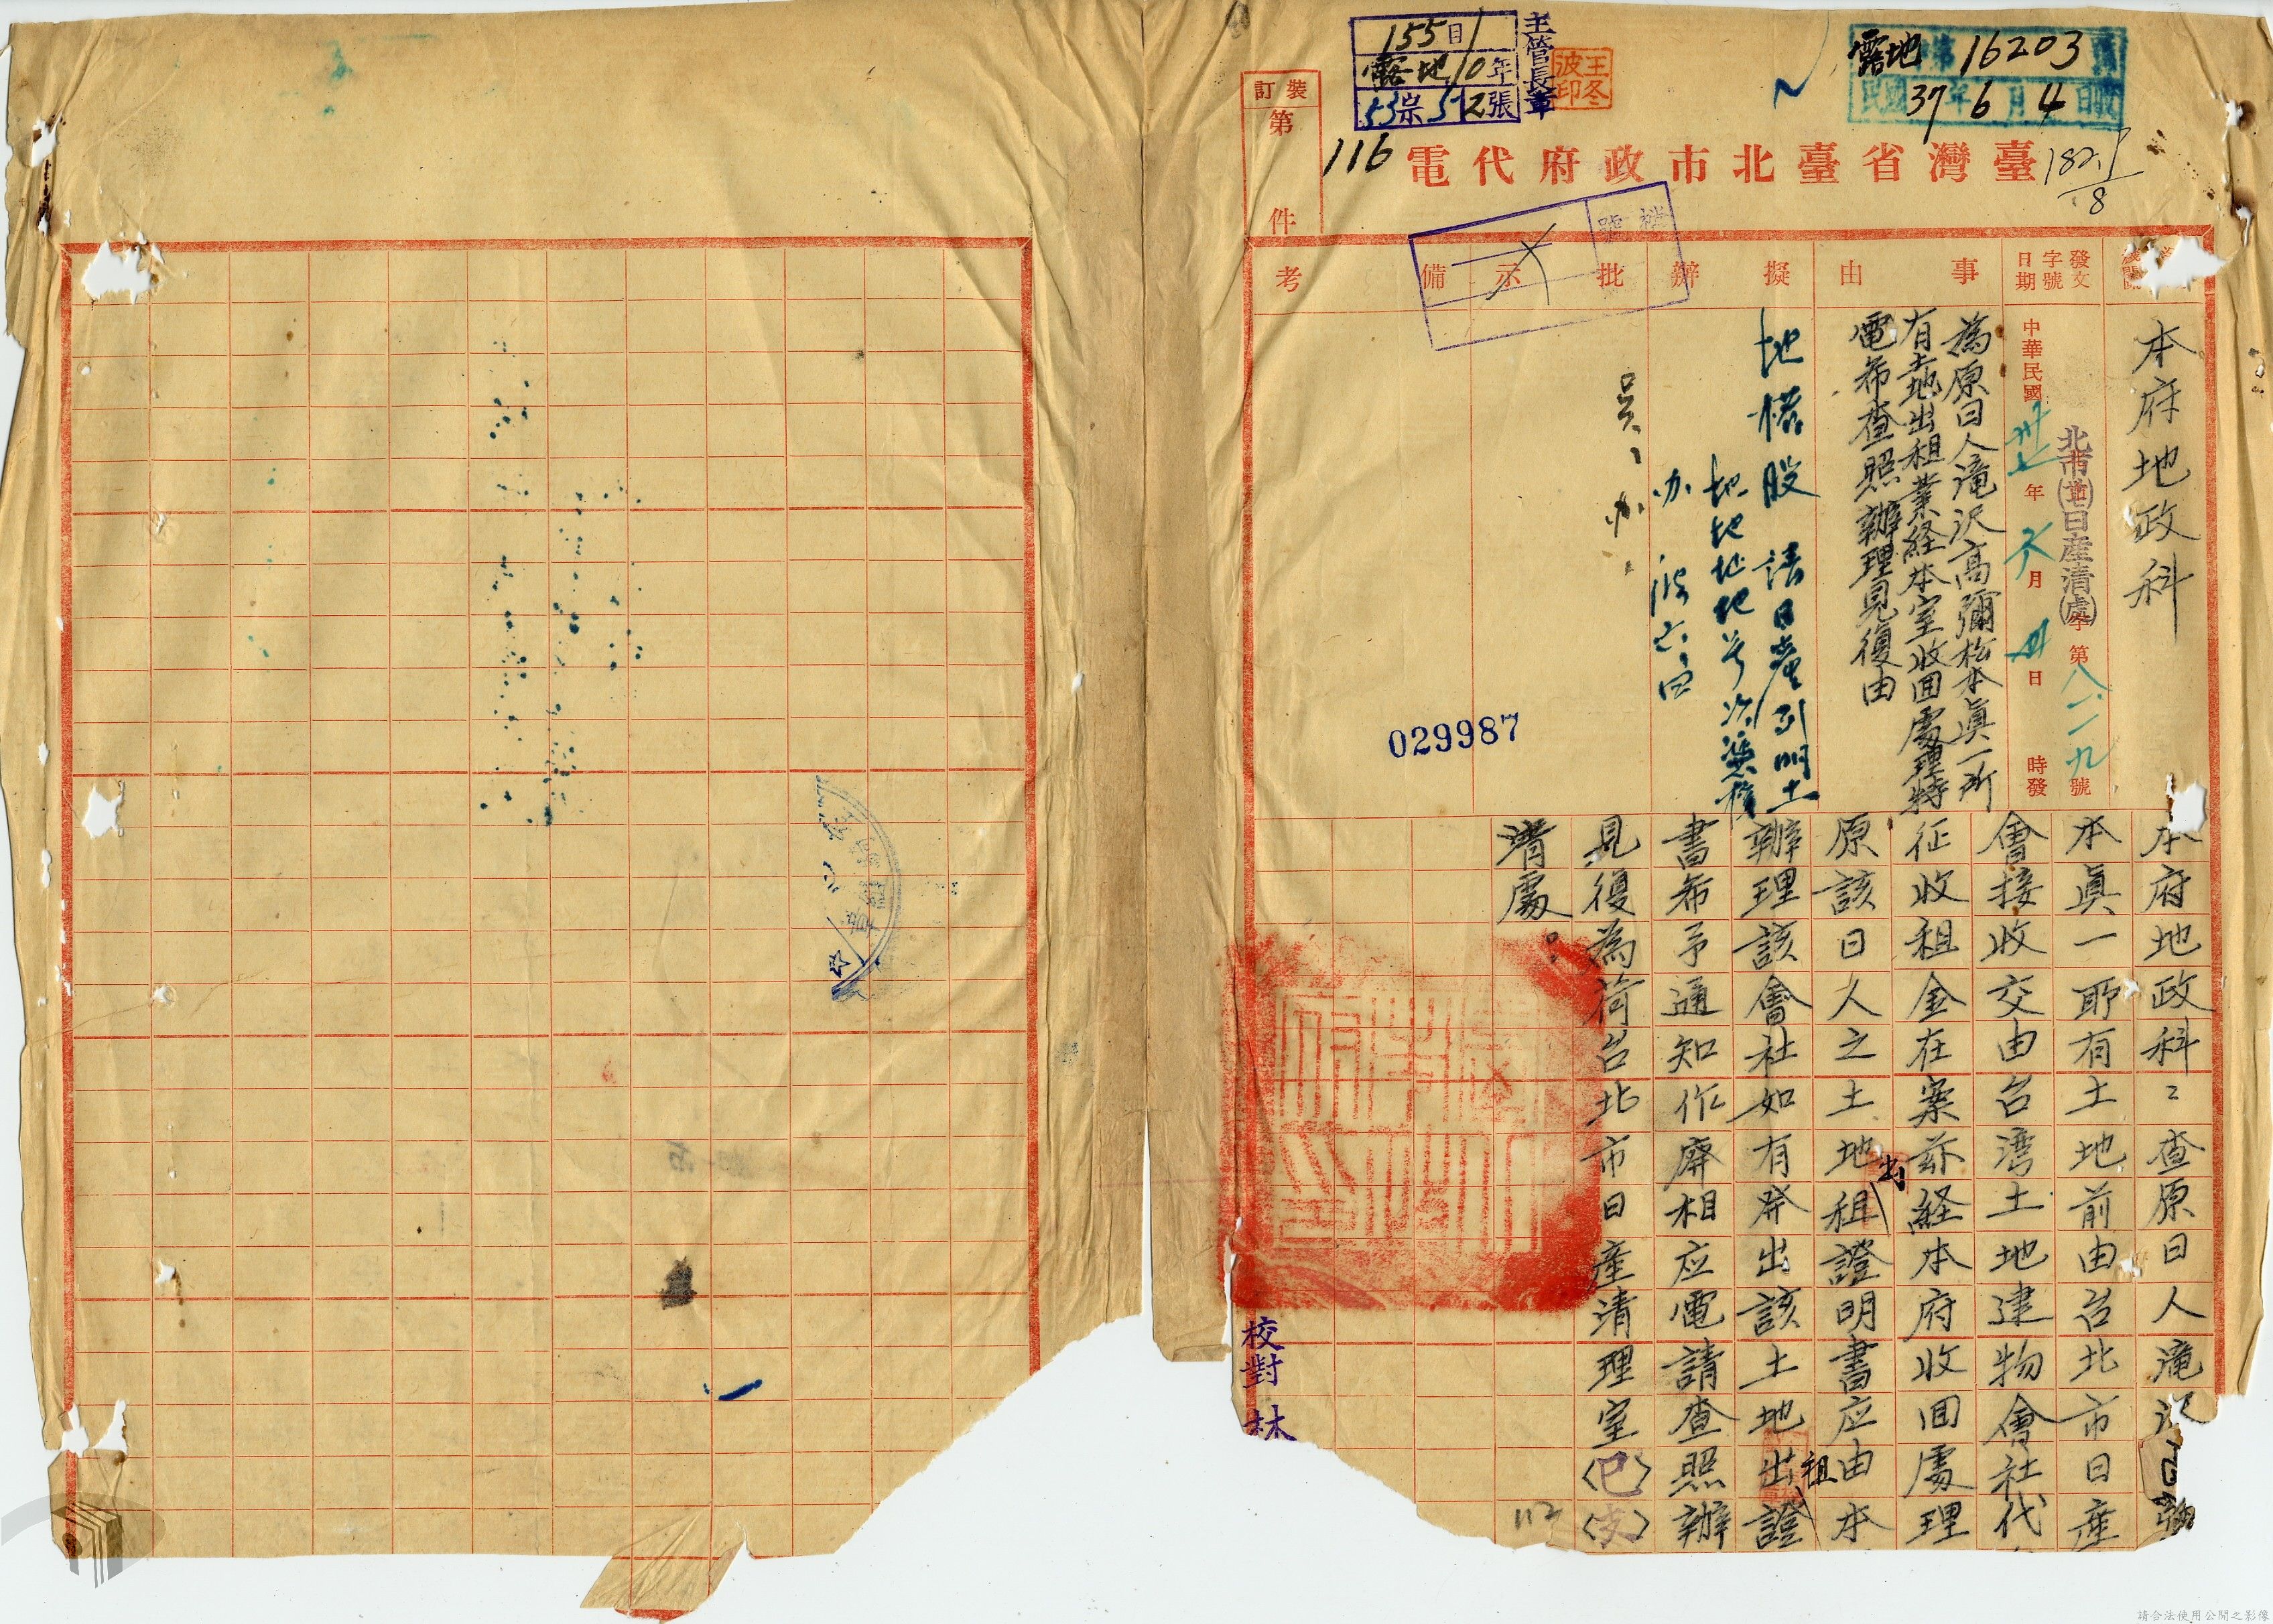 155目
露地10年
53宗512張
主管長章
王冬波印
露地 第16203號
民國37年6月4日收
裝訂
第116件
臺灣省臺北市政府代電
182.1/8
檔號
發文字號日期
事由
擬辦
批示
備考
本府地政科
北市(卅七)日產清(處)字第八一一九號
中華民國卅七年六月四日 時發
為原日人滝沢高彌松本眞一所
有土地出租業経本室收囬處理特
電希查照辦理見復由
地權股 請日產列明土
地地址地号
办
吳
办
029987
本府地政科：查原日人滝沢高彌
本眞一所有土地前由台北市日產
會接收交由台湾土地建物會社代
征收租金在案茲経本府收囬處理
原該日人之土地出租證明書应由本
辦理該會社如有發出該土地出租證
書希予通知作廢相应電請查照辦
見復為荷台北市日產清理室(巳)(支)
清處。
校對 林
112
請合法使用公開之影像